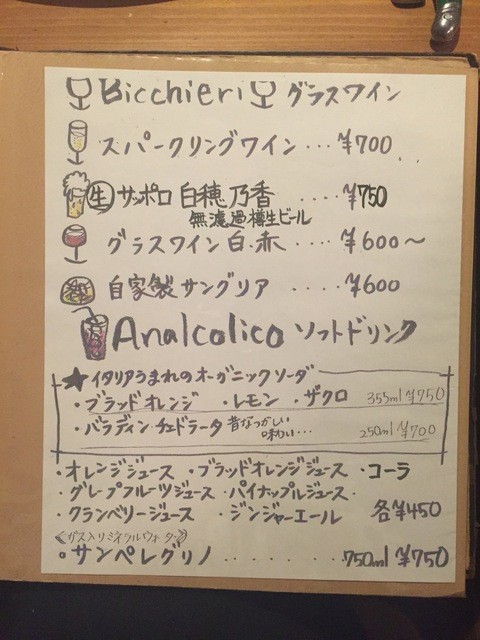 Bicchieri グラスワイン
スパークリングワイン ... ¥700
生 サッポロ 白穂乃香 .... ¥750
無濾過樽生ビール
グラスワイン 白・赤 .... ¥600〜
自家製サングリア ..... ¥600
Analcolico ソフトドリンク
★イタリアうまれのオーガニックソーダ
・ブラッドオレンジ ・レモン ・ザクロ 355ml ¥750
・バラディン チェドラータ 昔なつかしい味わい... 250ml ¥700
・オレンジジュース ・ブラッドオレンジジュース ・コーラ
・グレープフルーツジュース ・パイナップルジュース・
・クランベリージュース ・ジンジャーエール 各¥450
《ガス入りミネラルウォーター》
・サンペレグリノ ........ 750ml ¥750